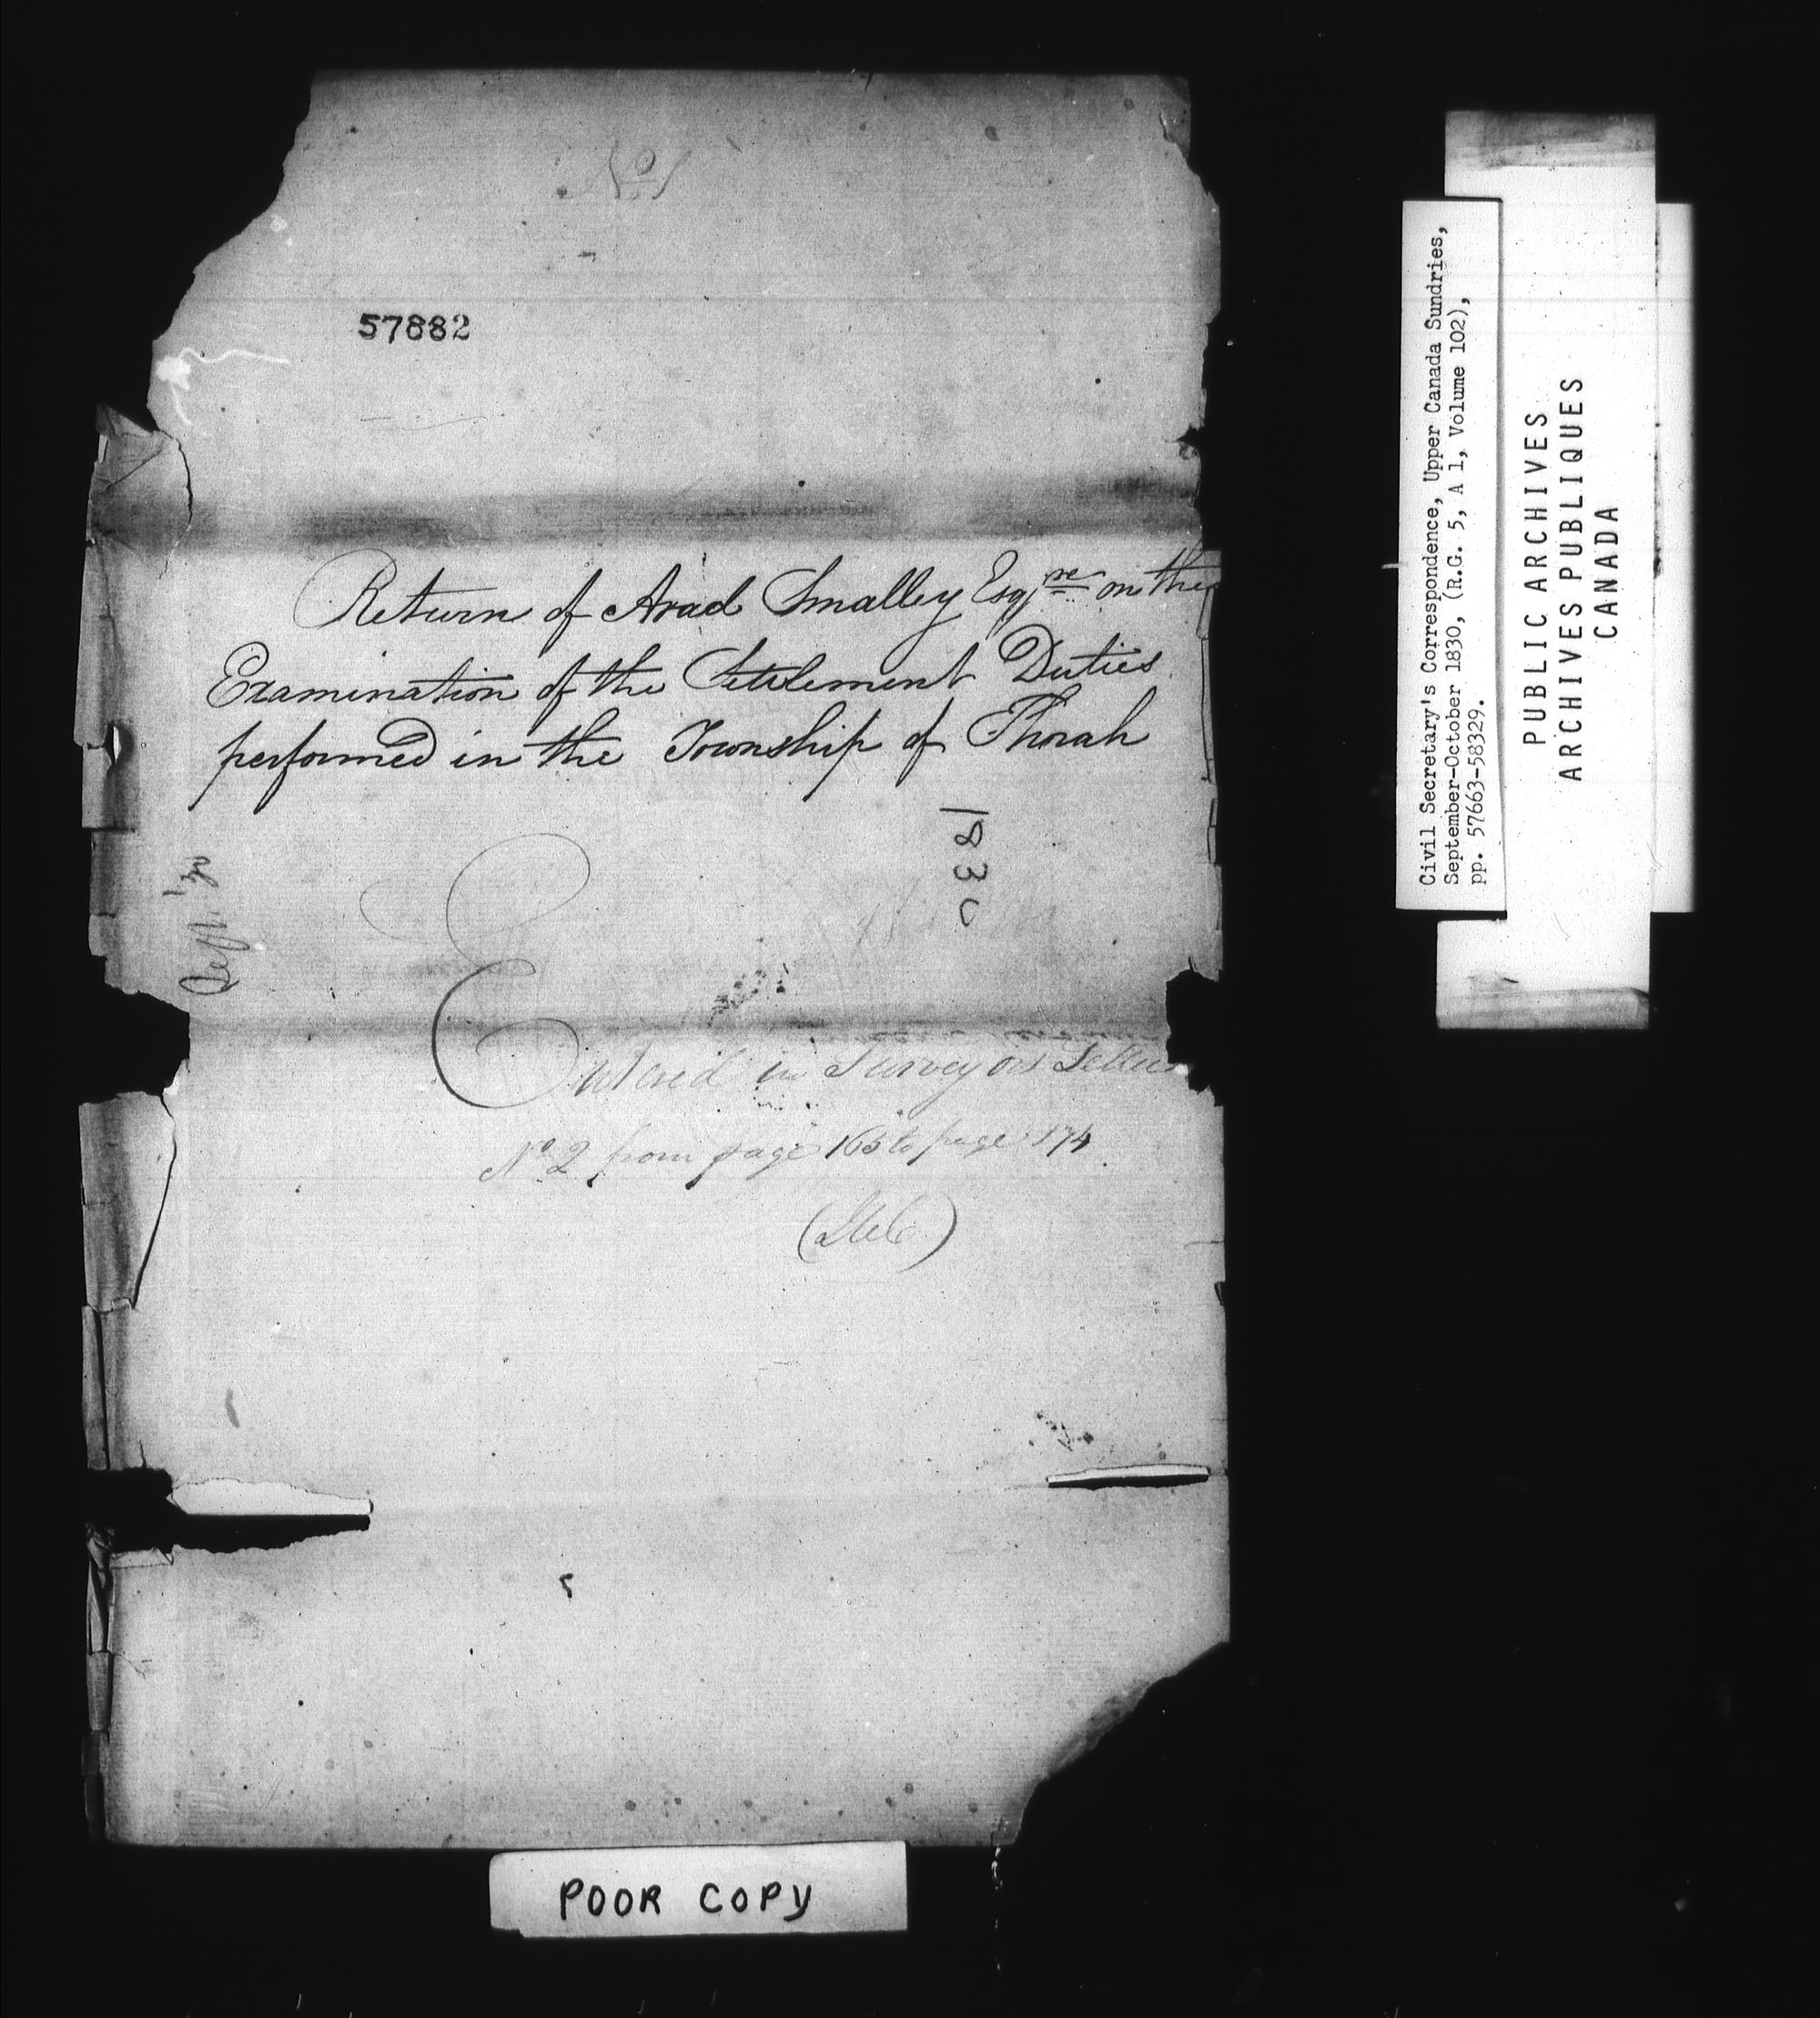 No 1
57882
Return of Arad Smalley Esqre on the
Examination of the Settlement Duties
performed in the Township of Thorah
1830
Sept. '30
Entered in Surveyors Letters
No 2 from page 165 to page 174
POOR COPY
Civil Secretary's Correspondence, Upper Canada Sundries,
September-October 1830, (R.G. 5, A 1, Volume 102),
pp. 57663-58329.
PUBLIC ARCHIVES
ARCHIVES PUBLIQUES
CANADA